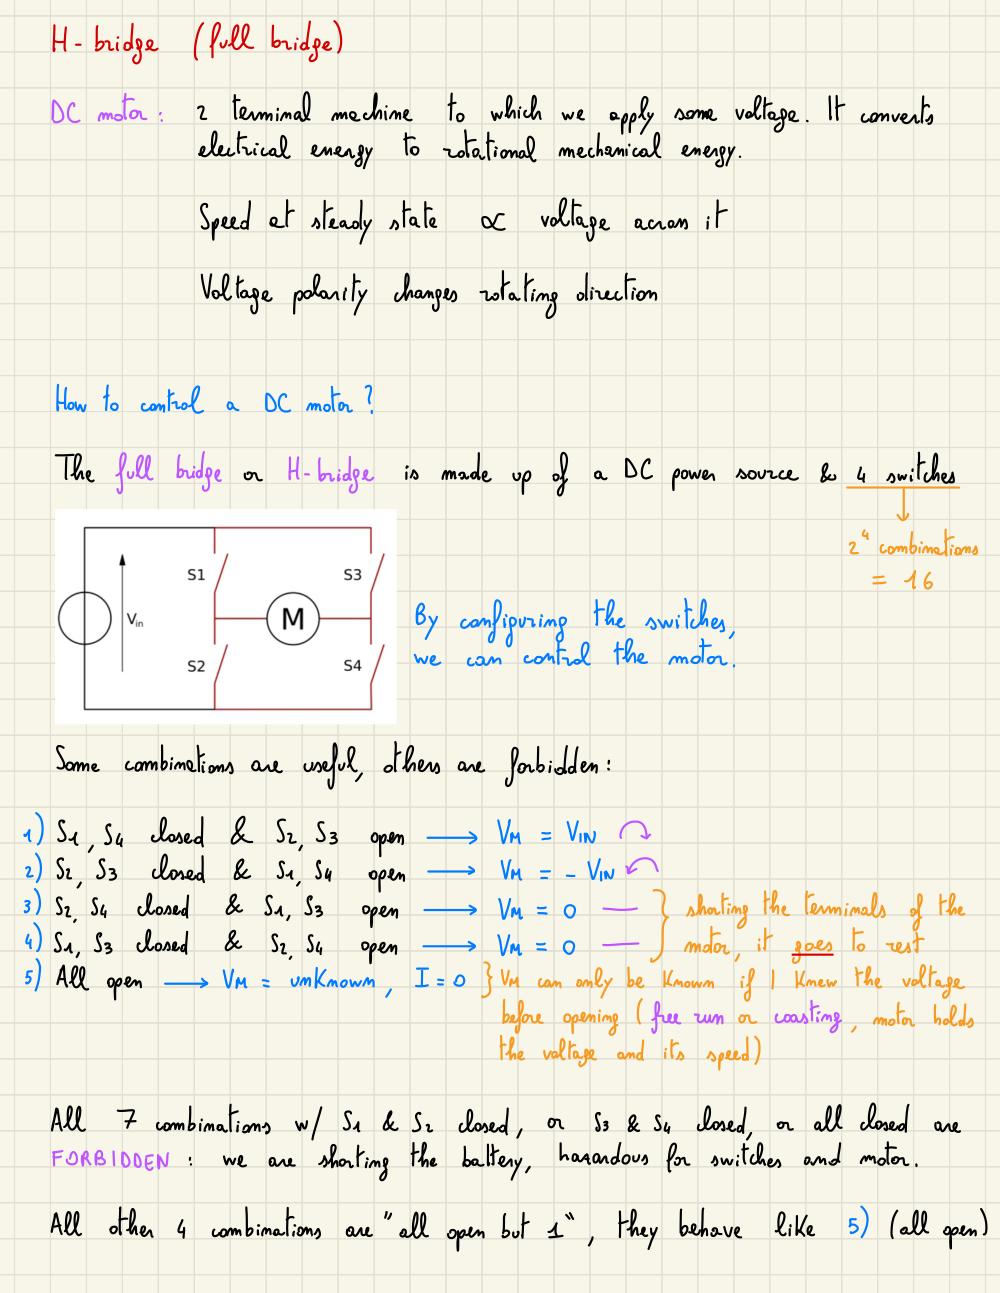 H-bridge (full bridge)
DC motor: 2 terminal machine to which we apply some voltage. It converts
electrical energy to rotational mechanical energy.
Speed at steady state ∝ voltage across it
Voltage polarity changes rotating direction
How to control a DC motor?
The full bridge or H-bridge is made up of a DC power source & 4 switches
2⁴ combinations
= 16
S1 S3
Vin M
S2 S4
By configuring the switches,
we can control the motor.
Some combinations are useful, others are forbidden:
1) S1, S4 closed & S2, S3 open → VM = VIN
2) S2, S3 closed & S1, S4 open → VM = - VIN
3) S2, S4 closed & S1, S3 open → VM = 0 — } shorting the terminals of the
4) S1, S3 closed & S2, S4 open → VM = 0 — motor, it goes to rest
5) All open → VM = unknown, I = 0 } VM can only be known if I knew the voltage
before opening (free run or coasting, motor holds
the voltage and its speed)
All 7 combinations w/ S1 & S2 closed, or S3 & S4 closed, or all closed are
FORBIDDEN: we are shorting the battery, hazardous for switches and motor.
All other 4 combinations are "all open but 1", they behave like 5) (all open)